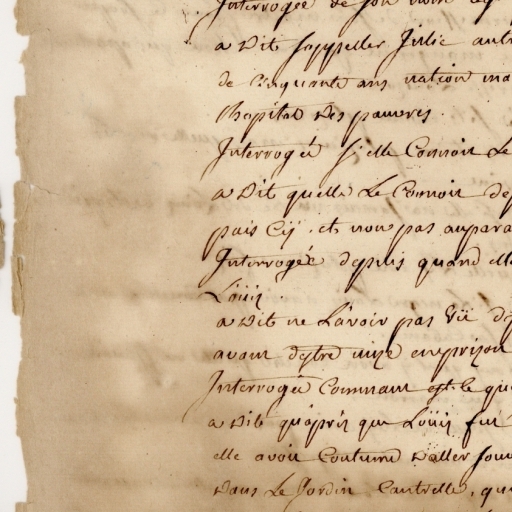 Interrogée de son nom
a Dit sappeller Julie autr
de Cinquante ans nation ma
lhopital Des pauvres.
Interrogée sy elle Connoit Le
a Dit quelle Le Connoit dep
pais Cÿ. et non pas aupara
Interrogée depuis quand ell
Loüis
a Dit ne Lavoir pas Vü de
avant destre mize enprizon
Interrogée Commant est Ce qu
a Dit quapres que Loüis fut
elle avoit Coutume Daller Sou
Dans Le Jardin Cantrelle, qu